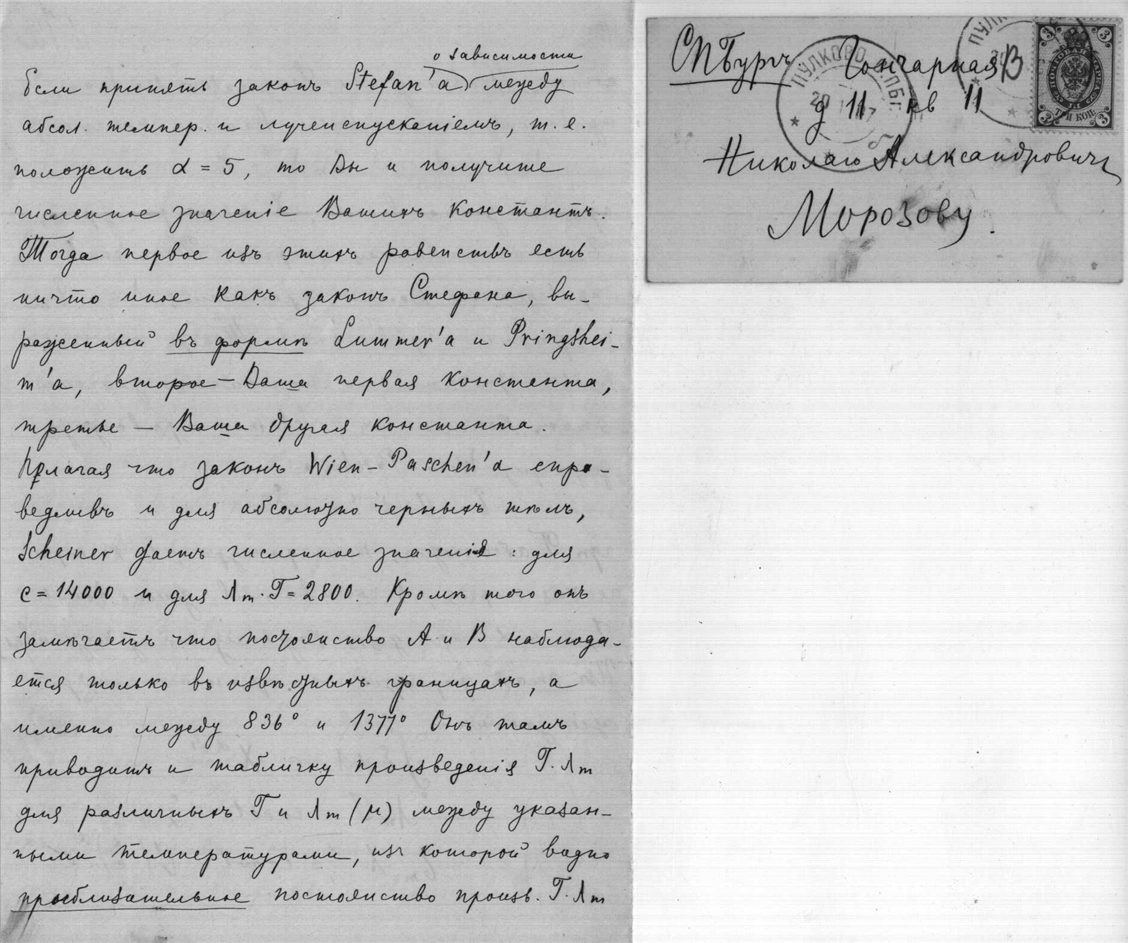 о зависимости
Если принять законъ Stefan'а между
абсол. темпер. и лучеиспусканіемъ, т. е.
положить α = 5, то Вы и получите
численное значеніе Вашихъ константъ.
Тогда первое изъ этихъ равенствъ есть
ничто иное какъ законъ Стефана, вы-
раженный въ формѣ Lummer'а и Pringshei-
m'а, второе – Ваша первая константа,
третье – Ваша другая константа.
Полагая что законъ Wien – Paschen'а спра-
ведливъ и для абсолютно черныхъ тѣлъ,
Scheiner даетъ численное значенія: для
c = 14000 и для λm·T = 2800. Кромѣ того онъ
замѣчаетъ что постоянство A и B наблюда-
ется только въ извѣстныхъ границахъ, а
именно между 836° и 1377° Онъ тамъ
приводитъ и табличку произведенія T.λm
для различныхъ T и λm (μ) между указан-
ными температурами, изъ которой видно
приблизительное постоянство произв. T.λm
СПБургъ Гончарная
д 11 кв 11
Николаю Александровичу
Морозову.
ПУЛКОВО С.ПБГ.
20
ПУЛКО
3 3
3 3
ТРИ КОП.